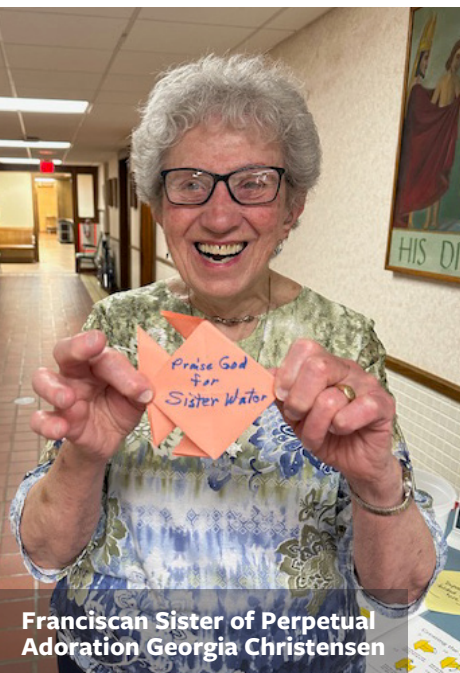 HIS DI
Praise God
for
Sister Water
Franciscan Sister of Perpetual
Adoration Georgia Christensen